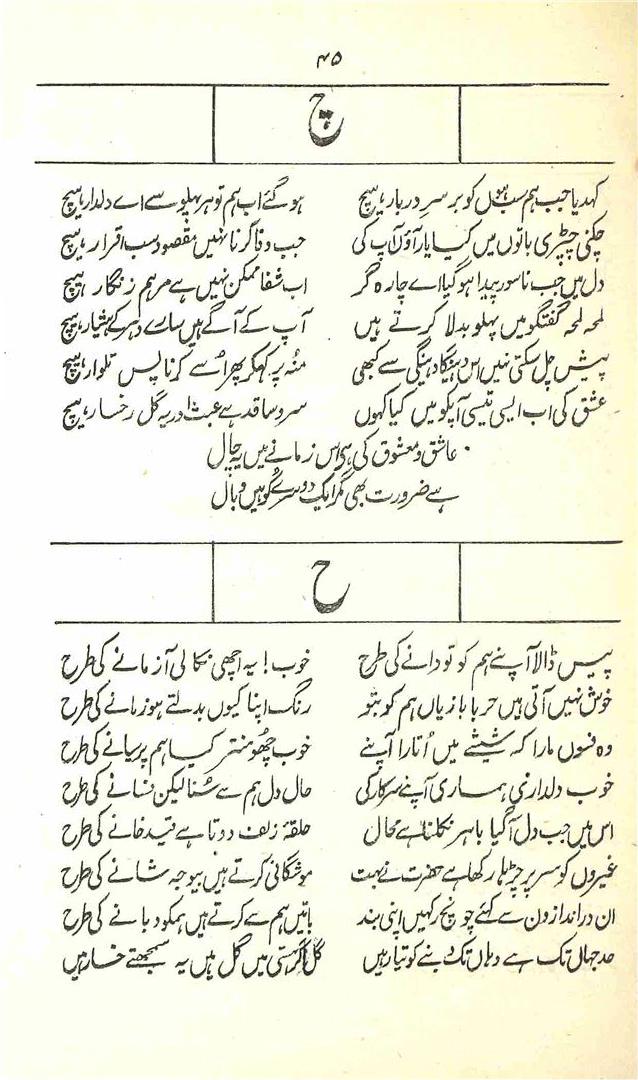 ۴۵
چ
کہدیا جب ہم سبھوں کو بر سرِ دربار ہیچ ہو گئے اب ہم تو ہر پہلو سے اے دلدار ہیچ
چکنی چپڑی باتوں میں کیا یار آؤں آپ کی جب وفا کرنا نہیں مقصود سب اقرار ہیچ
دل میں جب ناسور پیدا ہو گیا اے چارہ گر اب شفا ممکن نہیں ہے مرہم زنگار ہیچ
لمحہ لمحہ گفتگو میں پہلو بدلا کرتے ہیں آپ کے آگے ہیں سارے دہر کے ہشیار ہیچ
پیش چل سکتی نہیں اس دہینگا دہینگی سے کبھی منہ پر کہکر پھر اُسے کرنا پس تلوار ہیچ
عشق کی اب ایسی تیسی آپکو میں کیا کہوں سرو سا قد ہے عبث اور یہ گل رخسار ہیچ
عاشق و معشوق کی ہی اس زمانے میں یہ چال
ہے ضرورت بھی مگر ایک دوسرے کو ہیں وبال
ح
پیس ڈالا آپنے ہم کو تو دانے کی طرح خوب! یہ اچھی نکالی آزمانے کی طرح
خوش نہیں آتی ہیں حربا بازیاں ہم کو بتو رنگ اپنا کیوں بدلتے ہو زمانے کی طرح
وہ فسوں مارا کہ شیشے میں اُتارا آپنے خوب چھو منتر کیا ہم پر بیانے کی طرح
خوب دلداری ہماری آپنے سرکار کی حال دل ہم سے سُنا لیکن فسانے کی طرح
اس میں جب دل آ گیا باہر نکلنا ہے محال حلقۂ زلف دوتا ہے قید خانے کی طرح
غیروں کو سر پر چڑہا رکھا ہے حضرت نے بہت موشگافی کرتے ہیں بیوجہ شانے کی طرح
ان در انداز ون سے کہئے چونچ رکہیں اپنی بند باتیں ہم سے کرتے ہیں ہمکو دبانے کی طرح
حد جہاں تک ہے وہاں تک دبنے کو تیار ہیں گل اگر سستی میں گل ہیں یہ سمجھتے خار ہیں